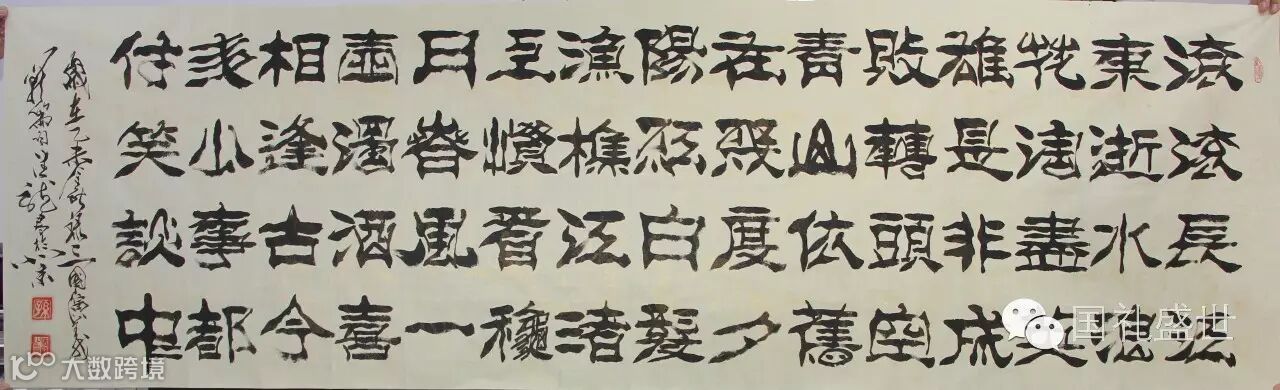 滾滾長江
東逝水浪
花淘盡英
雄是非成
敗轉頭空
青山依舊
在幾度夕
陽紅白髮
漁樵江渚
上慣看秋
月春風一
壺濁酒喜
相逢古今
多少事都
付笑談中
歲在乙未金秋錄三國演義
国礼盛世
大数跨境